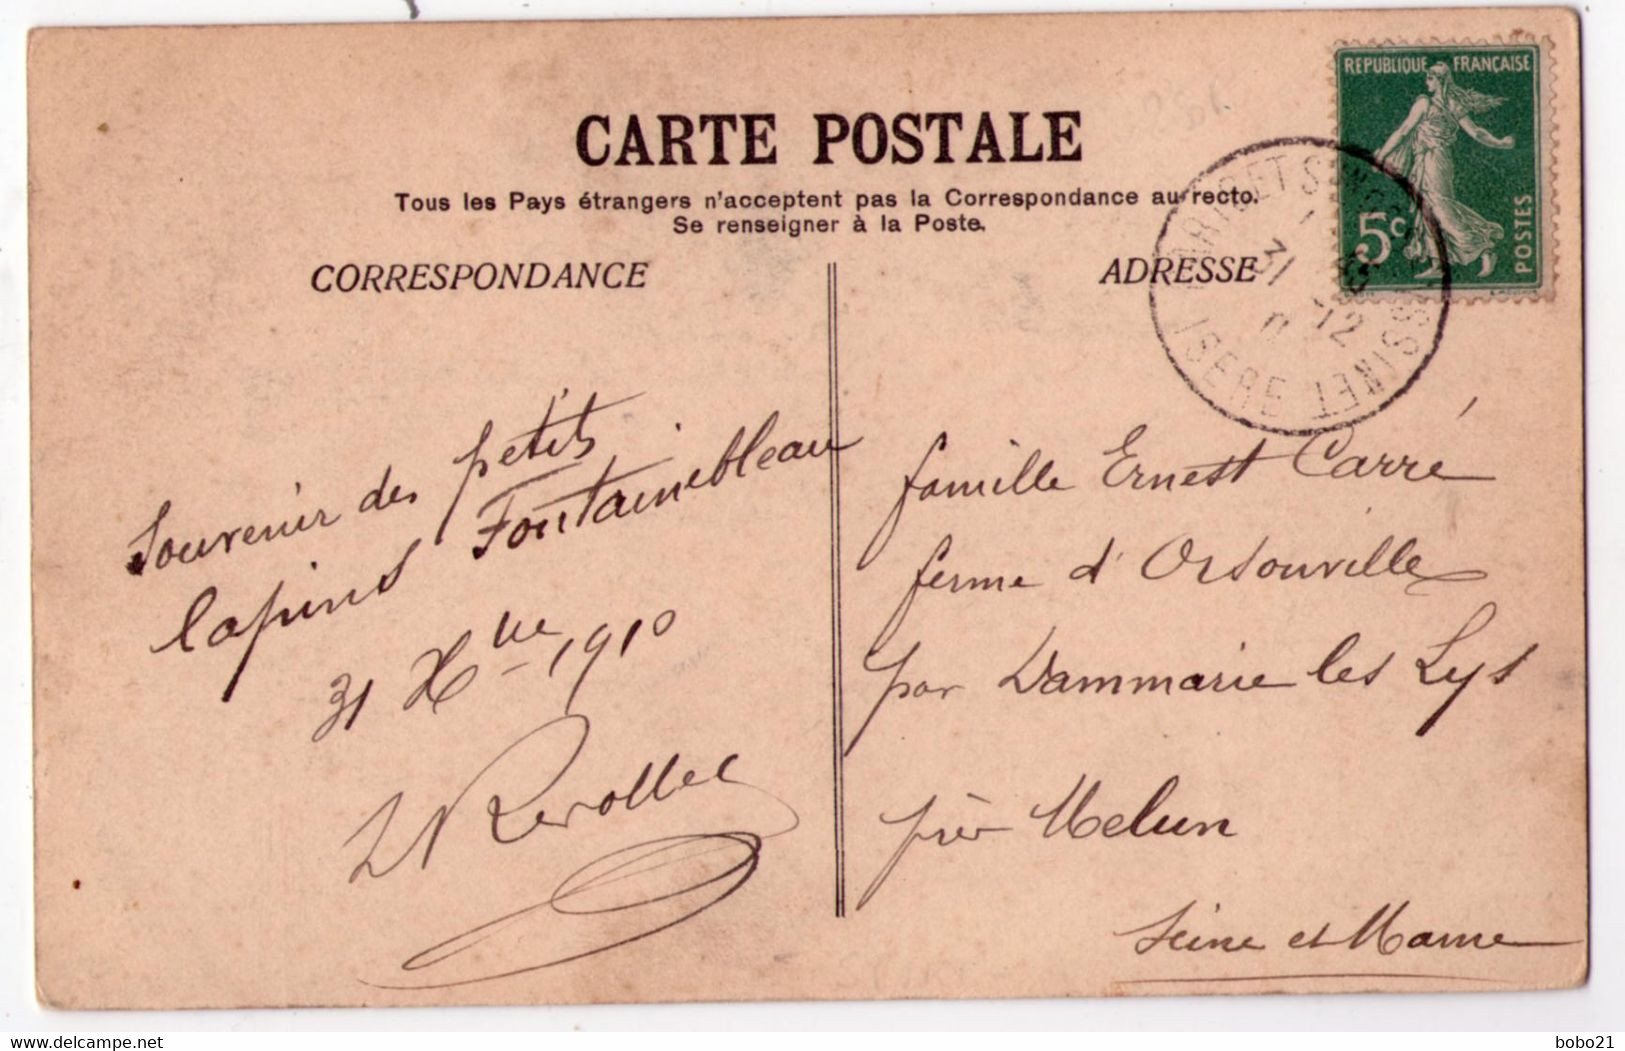 CARTE POSTALE
Tous les Pays étrangers n'acceptent pas la Correspondance au recto.
Se renseigner à la Poste.
CORRESPONDANCE
ADRESSE
REPUBLIQUE FRANÇAISE
5c
POSTES
31 12
ISERE
Souvenir des petits
lapins Fontainebleau
31 Xbre 1910
famille Ernest Carré
ferme d'Orsonville
par Dammarie les Lys
près Melun
Seine et Marne
www.delcampe.net
bobo21